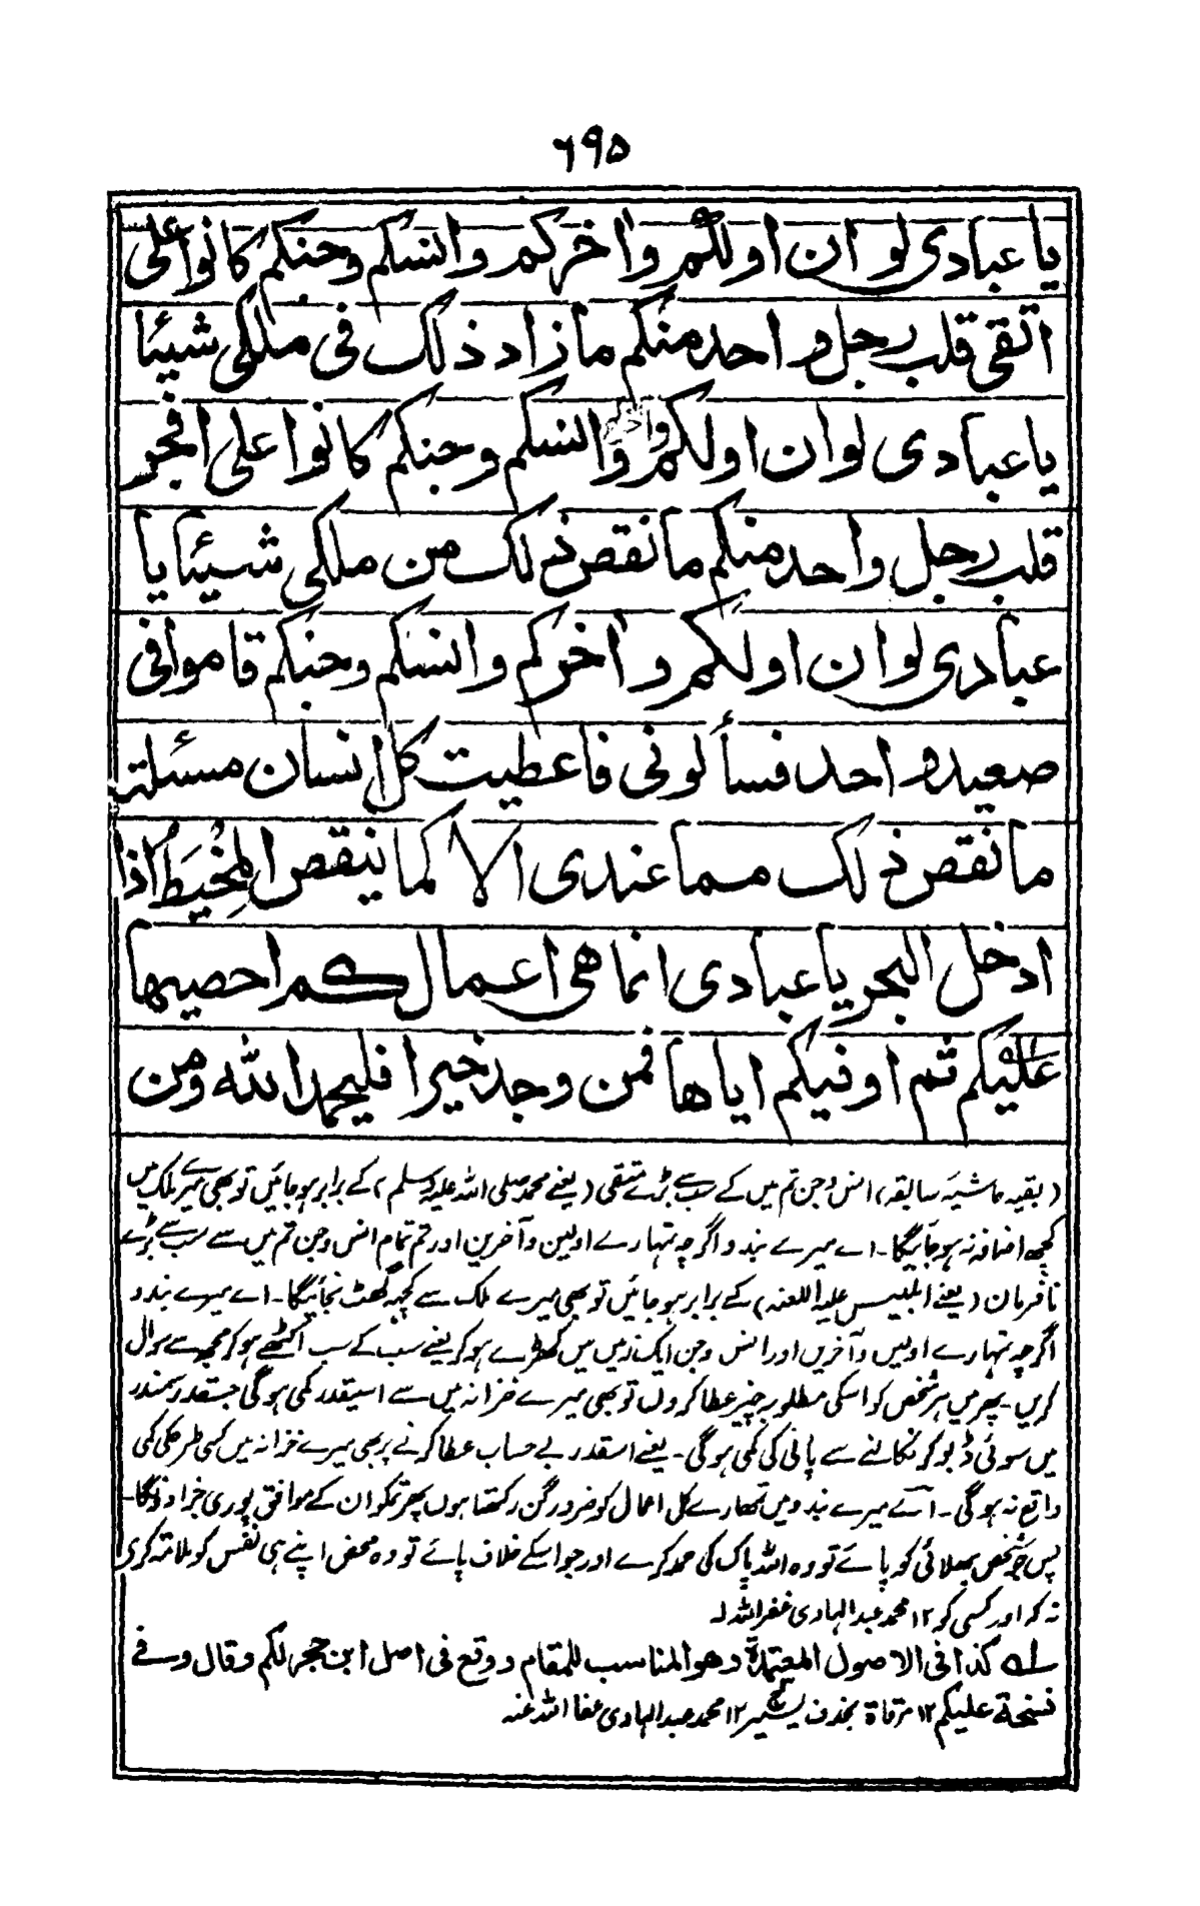 ۶۹۵
يا عبادى لو ان اولكم واخركم وانسكم وجنكم كانوا على
اتقى قلب رجل واحد منكم ما زاد ذلك فى ملكى شيئا
يا عبادى لو ان اولكم واخركم وانسكم وجنكم كانوا على افجر
قلب رجل واحد منكم ما نقص ذلك من ملكى شيئا يا
عبادى لو ان اولكم واخركم وانسكم وجنكم قاموا فى
صعيد واحد فسألونى فاعطيت كل انسان مسئلته
ما نقص ذلك مما عندى الا كما ينقص المِخْيَطُ اذا
ادخل البحر يا عبادى انما هى اعمالكم احصيها
عليكم ثم اوفيكم اياها فمن وجد خيرا فليحمد الله ومن
(بقیہ حاشیہ سابقہ) انس و جن تم میں کے سب سے بڑے متقی (یعنے محمد صلی اللہ علیہ وسلم) کے برابر ہو جائیں تو بھی میرے ملک میں
کچھ اضافہ نہ ہو جائیگا۔ اے میرے بندو اگرچہ تمہارے اولین و آخرین اور تم تمام انس و جن تم میں سے سب سے بڑے
نافرمان (یعنے ابلیس علیہ اللعنہ) کے برابر ہو جائیں تو بھی میرے ملک سے کچھ گھٹ نجائیگا۔ اے میرے بندو
اگرچہ تمہارے اولیں و آخریں اور انس و جن ایک زمیں میں کھڑے ہو کر یعنے سب کے سب اکٹھے ہو کر مجھ سے سوال
کریں۔ پھر میں ہر شخص کو اسکی مطلوبہ چیز عطا کروں تو بھی میرے خزانہ میں سے اسیقدر کمی ہوگی جسقدر سمندر
میں سوئی ڈبو کر نکالنے سے پانی کی کمی ہوگی۔ یعنے اسقدر بے حساب عطا کرنے پر بھی میرے خزانہ میں کسی طرحکی کمی
واقع نہ ہوگی۔ اے میرے بندو میں تمھارے کل اعمال کو ضرور گن رکھتا ہوں پھر تمکو ان کے موافق پوری جزا دونگا۔
پس جو شخص بھلائی کو پائے تو وہ اللہ پاک کی حمد کرے اور جو اسکے خلاف پائے تو وہ محض اپنے ہی نفس کو ملامت کرے
نہ کہ اور کسی کو ۱۲ محمد عبد الہادی غفر اللہ لہ
لہ كذا فى الاصول المعتمدة وهو المناسب للمقام ووقع فى اصل ابن حجر لكم وقال وفى
نسخة عليكم ۱۲ مرقاة بحذف يسير ۱۲ محمد عبد الہادی عفا اللہ عنہ